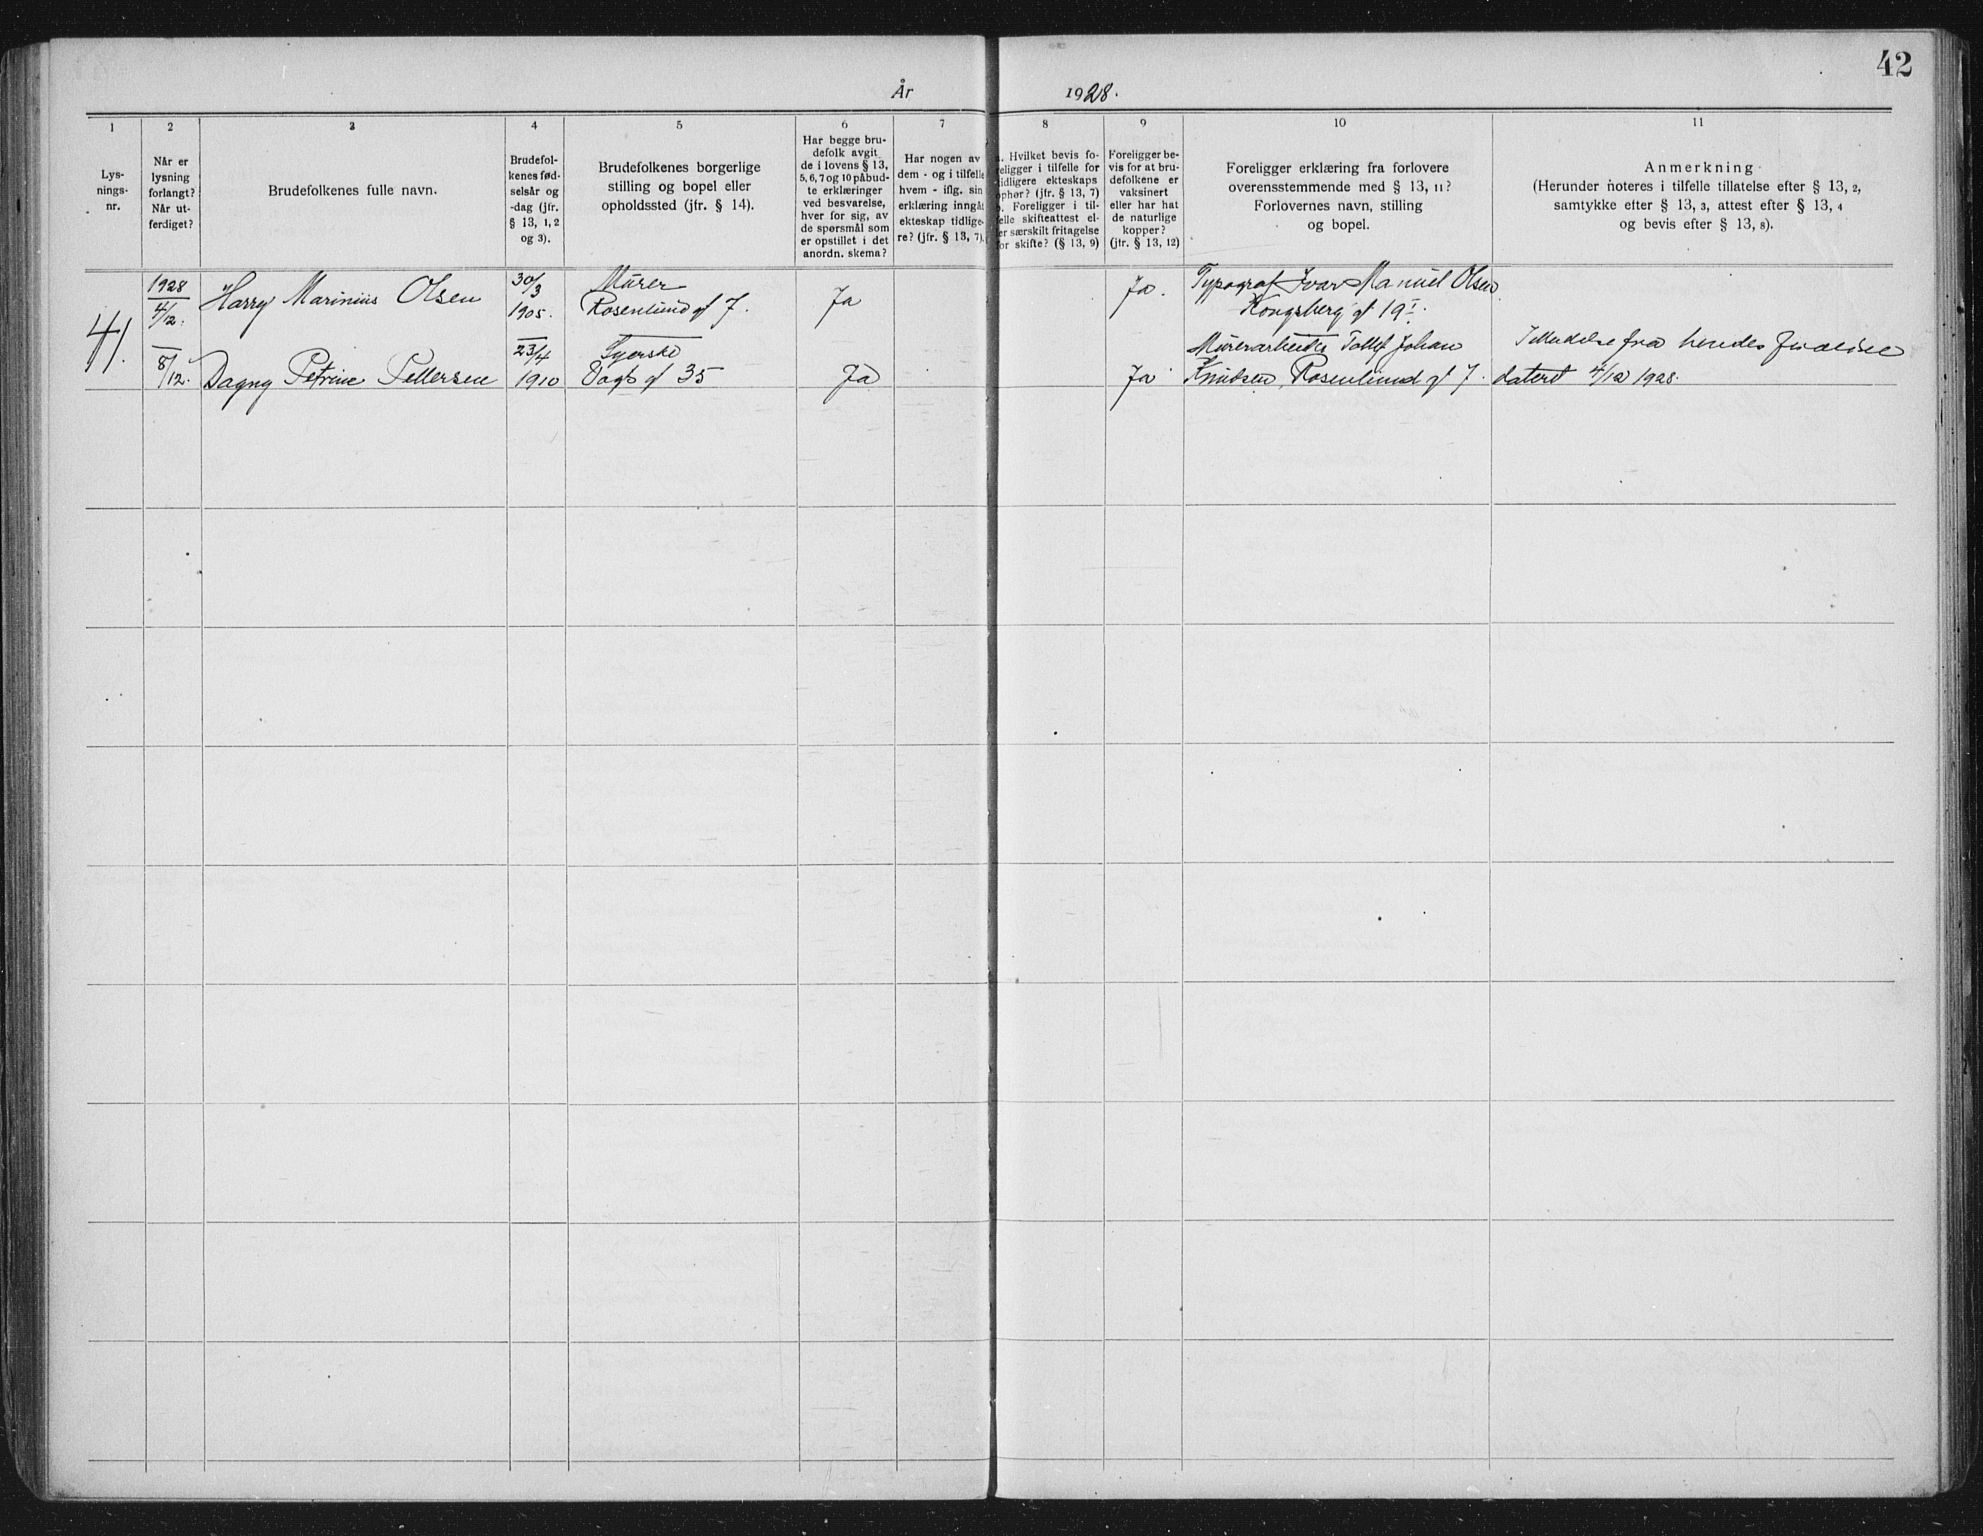 42
År 1928.
1 2 3 4 5 6 7 8 9 10 11
Lys-
nings-
nr.
Når er
lysning
forlangt?
Når ut-
ferdiget?
Brudefolkenes fulle navn.
Brudefol-
kenes fød-
selsår og
-dag (jfr.
§ 13, 1, 2
og 3).
Brudefolkenes borgerlige
stilling og bopel eller
opholdssted (jfr. § 14).
Har begge bru-
defolk avgit
de i lovens § 13,
5, 6, 7 og 10 påbud-
te erklæringer
ved besvarelse,
hver for sig, av
de spørsmål som
er opstillet i det
anordn. skema?
Har nogen av
dem - og i tilfelle
hvem - iflg. sin
erklæring inngåt
ekteskap tidlige-
re? (jfr. § 13, 7).
a. Hvilket bevis fo-
religger i tilfelle for
tidligere ekteskaps
ophør? (jfr. § 13, 7)
b. Foreligger i til-
felle skifteattest el-
ler særskilt fritagelse
for skifte? (§ 13, 9)
Foreligger be-
vis for at bru-
defolkene er
vaksinert
eller har hat
de naturlige
kopper?
(jfr. § 13, 12)
Foreligger erklæring fra forlovere
overensstemmende med § 13, 11?
Forlovernes navn, stilling
og bopel.
Anmerkning
(Herunder noteres i tilfelle tillatelse efter § 13, 2,
samtykke efter § 13, 3, attest efter § 13, 4
og bevis efter § 13, 8).
41.
1928
4/12.
8/12.
Harry Marinius Olsen
30/3
1905.
Murer
Rosenlund gt 7.
Ja
Ja.
Typograf Ivar Manuel Olsen
Kongsberg gt 19 I.
Dagny Petrine Pettersen
23/4
1910
Syerske
Vogts gt 35
Ja
Ja
Murerarbeider Tollef Johan
Knudsen, Rosenlund gt 7.
Tilladelse fra hendes forældre
datert 4/12 1928.